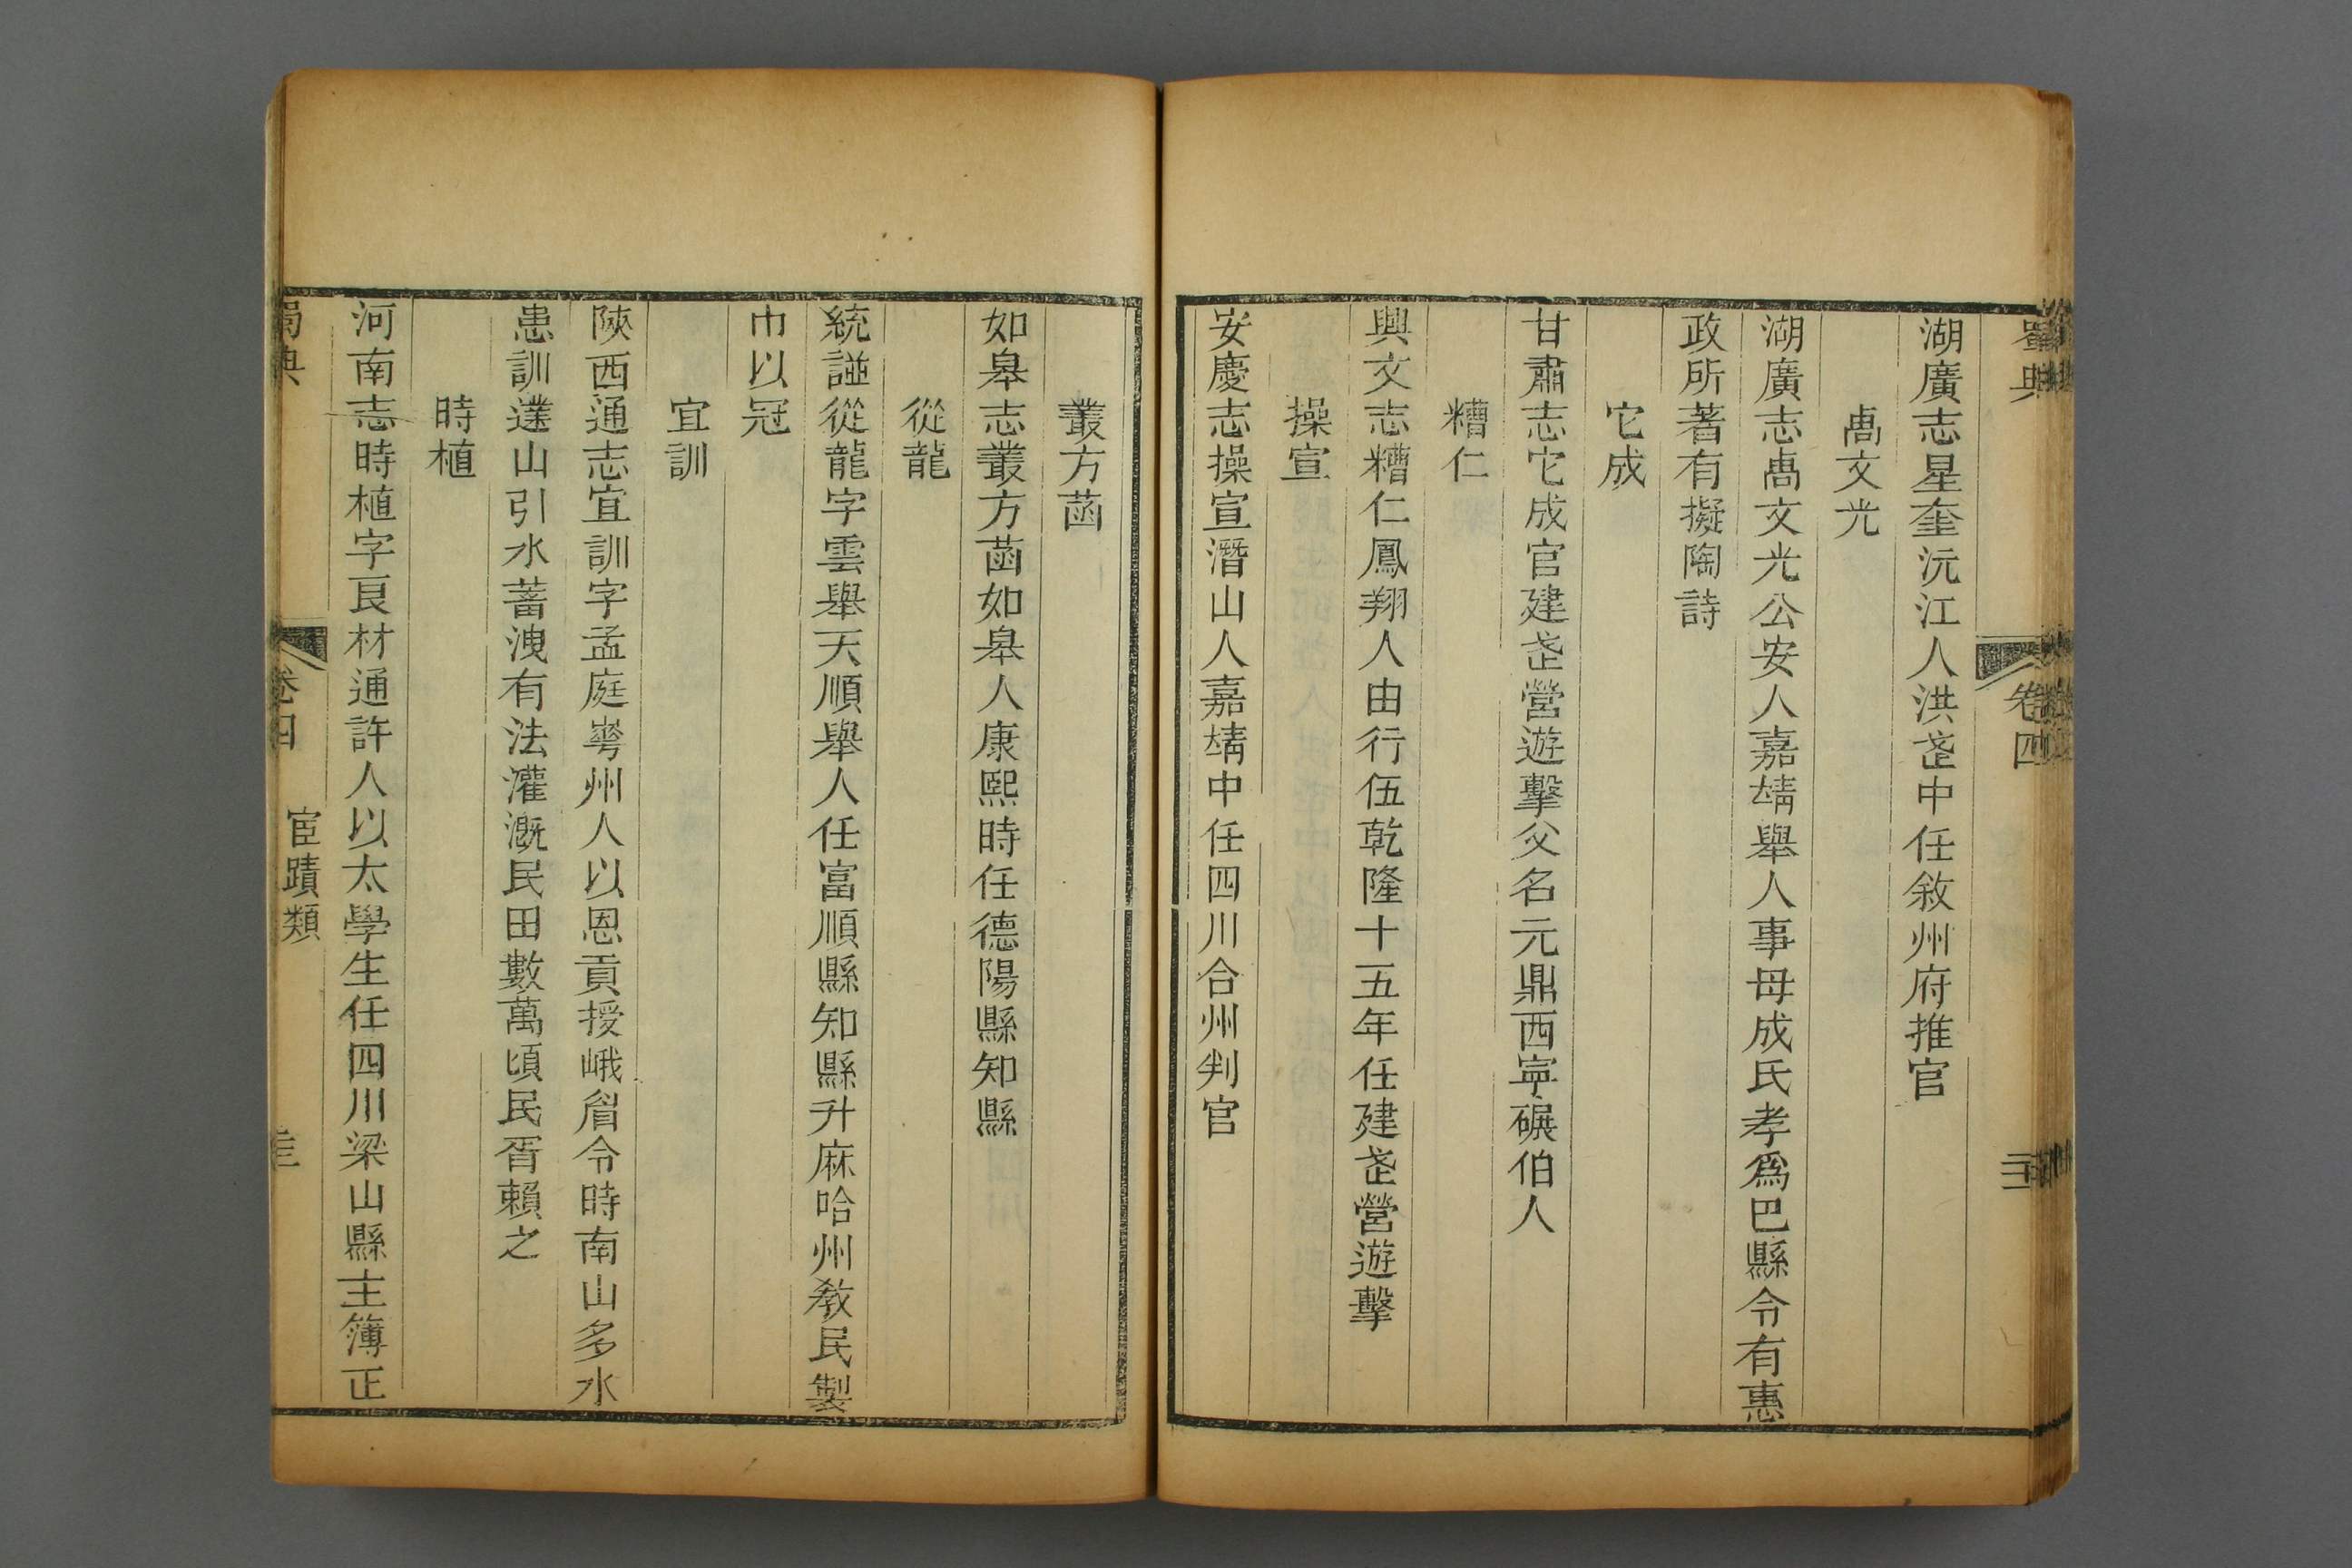 蜀典
卷四
湖廣志星奎沅江人洪武中任敘州府推官
禼文光
湖廣志禼文光公安人嘉靖舉人事母成氏孝爲巴縣令有惠
政所著有擬陶詩
它成
甘肅志它成官建武營遊擊父名元鼎西寧碾伯人
糟仁
興文志糟仁鳳翔人由行伍乾隆十五年任建武營遊擊
操宣
安慶志操宣潛山人嘉靖中任四川合州判官
叢方菡
如皋志叢方菡如皋人康熙時任德陽縣知縣
從龍
統譜從龍字雲舉天順舉人任富順縣知縣升麻哈州教民製
巾以冠
宜訓
陝西通志宜訓字孟庭崋州人以恩貢授峨眉令時南山多水
患訓遶山引水蓄洩有法灌溉民田數萬頃民胥賴之
時植
河南志時植字良材通許人以太學生任四川梁山縣主簿正
蜀典
卷四
宦蹟類